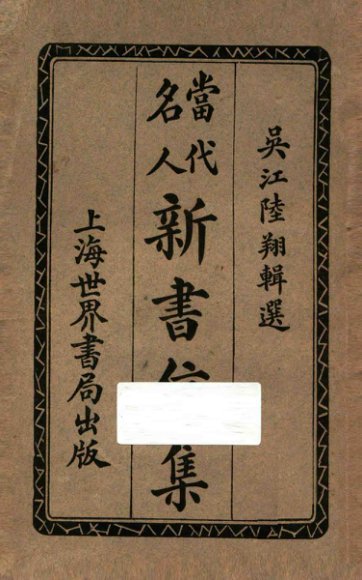 吳江陸翔輯選
當代
名人
新書集
上海世界書局出版